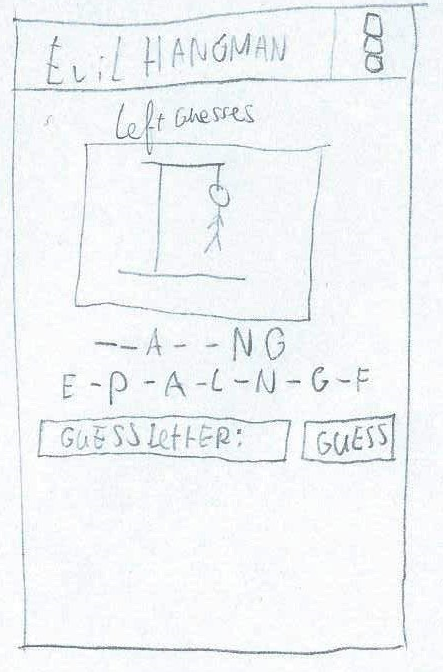 EviL HANGMAN
Left Guesses
--A--NG
E-P-A-L-N-G-F
GUESS LettER:
GUESS